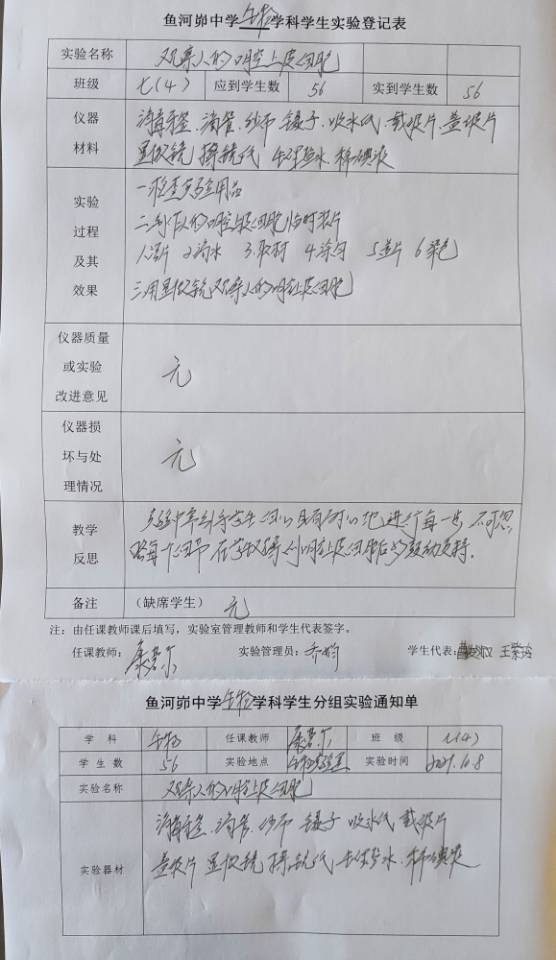 鱼河峁中学生物学科学生实验登记表
实验名称 观察人的口腔上皮细胞
班级 七(4) 应到学生数 56 实到学生数 56
仪器 消毒牙签、滴管、纱布、镊子、吸水纸、载玻片、盖玻片
材料 显微镜、擦镜纸、生理盐水、稀碘液
实验 一、检查实验用品
过程 二、制作人的口腔上皮细胞临时装片
及其 1.擦片 2.滴水 3.取材 4.涂匀 5.盖片 6.染色
效果 三、用显微镜观察人的口腔上皮细胞
仪器质量
或实验 无
改进意见
仪器损
坏与处 无
理情况
教学
反思
备注 (缺席学生) 无
注：由任课教师课后填写，实验室管理教师和学生代表签字。
任课教师： 实验管理员： 学生代表：
鱼河峁中学生物学科学生分组实验通知单
学 科 生物 任课教师 班 级 七(4)
学 生 数 56 实验地点 生物实验室 实验时间
实验名称 观察人的口腔上皮细胞
消毒牙签、滴管、纱布、镊子、吸水纸、载玻片
实验器材 盖玻片、显微镜、擦镜纸、生理盐水、稀碘液